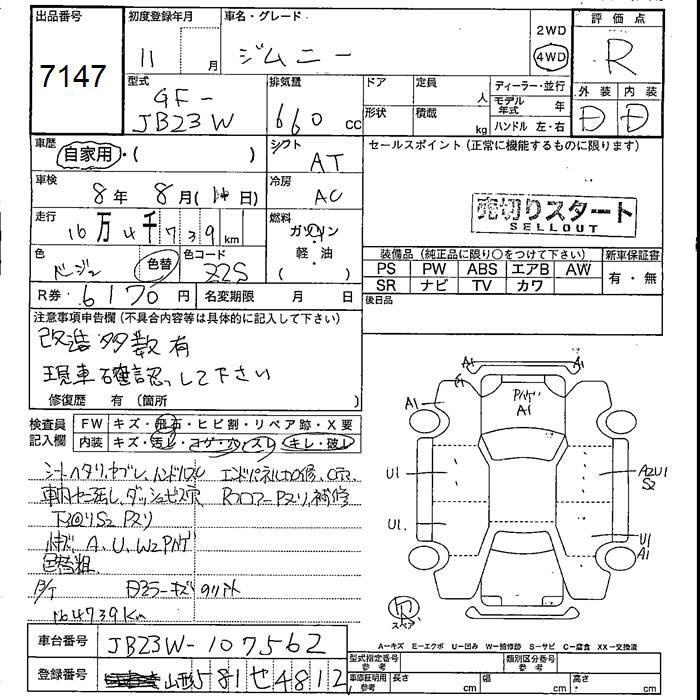 出品番号
7147
初度登録年月
11 月
車名・グレード
ジムニー
2WD
4WD
評価点
R
型式
GF-
JB23W
排気量
660 cc
ドア
定員
人
形状
積載
kg
ディーラー・並行
モデル年式
年
ハンドル 左・右
外装
内装
D
D
車歴
自家用・( )
シフト
AT
セールスポイント(正常に機能するものに限ります)
車検
8年 8月( 日)
冷房
AC
売切りスタート
SELLOUT
走行
16万4千739km
燃料
ガソリン
軽・油
( )
色
ベージュ
色替
色コード
Z2S
装備品(純正品に限り○をつけて下さい)
新車保証書
PS PW ABS エアB AW
SR ナビ TV カワ
有・無
R券
6170円
名変期限 月 日
後日品
注意事項申告欄(不具合内容等は具体的に記入して下さい)
改造多数有
現車確認して下さい
修復歴 有(箇所 )
検査員
記入欄
FW キズ・飛石・ヒビ割・リペア跡・X要
内装 キズ・汚レ・コゲ・穴・スレ・キレ・破レ
シートヘタリ、
エンドパネル
車内ヤニ汚し、ダッシュビス穴
下回りS2
A、U、W2
色替粗
164739Km
A1
A1
A1
U1
U1
A2U1
S2
U1
A1
スペア
A-キズ E-エクボ U-凹み W-補修跡 S-サビ C-腐食 XX-交換済
車台番号
JB23W-107562
登録番号
山形581セ4812
型式指定番号
参考
類別区分番号
参考
車庫証明用
参考
長さ
cm
幅
cm
高さ
cm